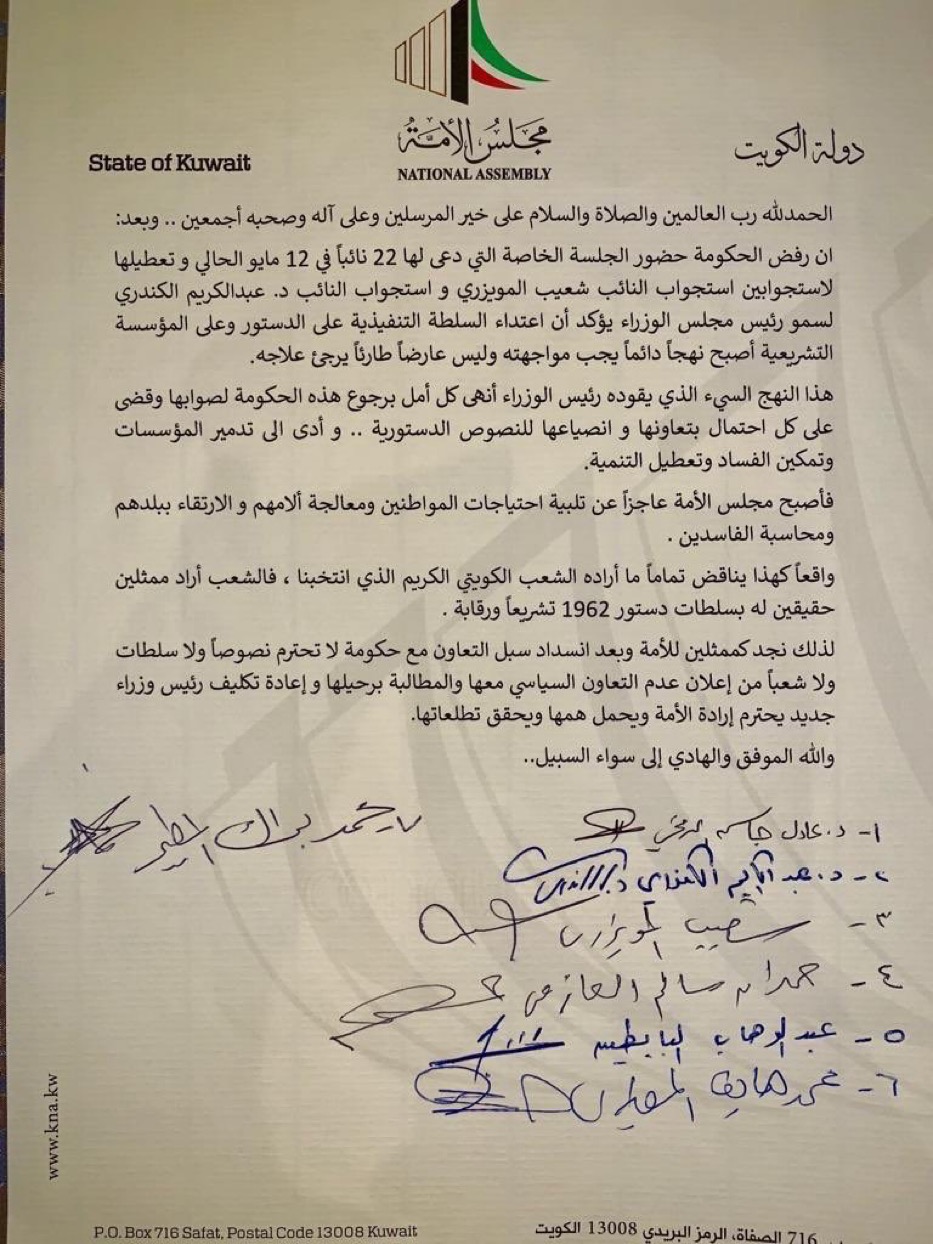 مجلس الأمة
NATIONAL ASSEMBLY
دولة الكويت
State of Kuwait
الحمدلله رب العالمين والصلاة والسلام على خير المرسلين وعلى آله وصحبه أجمعين .. وبعد:
ان رفض الحكومة حضور الجلسة الخاصة التي دعى لها 22 نائباً في 12 مايو الحالي و تعطيلها
لاستجوابين استجواب النائب شعيب المويزري و استجواب النائب د. عبدالكريم الكندري
لسمو رئيس مجلس الوزراء يؤكد أن اعتداء السلطة التنفيذية على الدستور وعلى المؤسسة
التشريعية أصبح نهجاً دائماً يجب مواجهته وليس عارضاً طارئاً يرجئ علاجه.
هذا النهج السيء الذي يقوده رئيس الوزراء أنهى كل أمل برجوع هذه الحكومة لصوابها وقضى
على كل احتمال بتعاونها و انصياعها للنصوص الدستورية .. و أدى الى تدمير المؤسسات
وتمكين الفساد وتعطيل التنمية.
فأصبح مجلس الأمة عاجزاً عن تلبية احتياجات المواطنين ومعالجة ألامهم و الارتقاء ببلدهم
ومحاسبة الفاسدين .
واقعاً كهذا يناقض تماماً ما أراده الشعب الكويتي الكريم الذي انتخبنا ، فالشعب أراد ممثلين
حقيقين له بسلطات دستور 1962 تشريعاً ورقابة .
لذلك نجد كممثلين للأمة وبعد انسداد سبل التعاون مع حكومة لا تحترم نصوصاً ولا سلطات
ولا شعباً من إعلان عدم التعاون السياسي معها والمطالبة برحيلها و إعادة تكليف رئيس وزراء
جديد يحترم إرادة الأمة ويحمل همها ويحقق تطلعاتها.
والله الموفق والهادي إلى سواء السبيل..
١- د. عادل جاسم الدمخي
٢- د. عبدالكريم الكندري
٣- شعيب المويزري
٤- حمدان سالم العازمي
٥- عبدالوهاب البابطين
٦- محمد هايف المطيري
٧- محمد براك المطير
www.kna.kw
P.O. Box 716 Safat, Postal Code 13008 Kuwait
716 الصفاة، الرمز البريدي 13008 الكويت